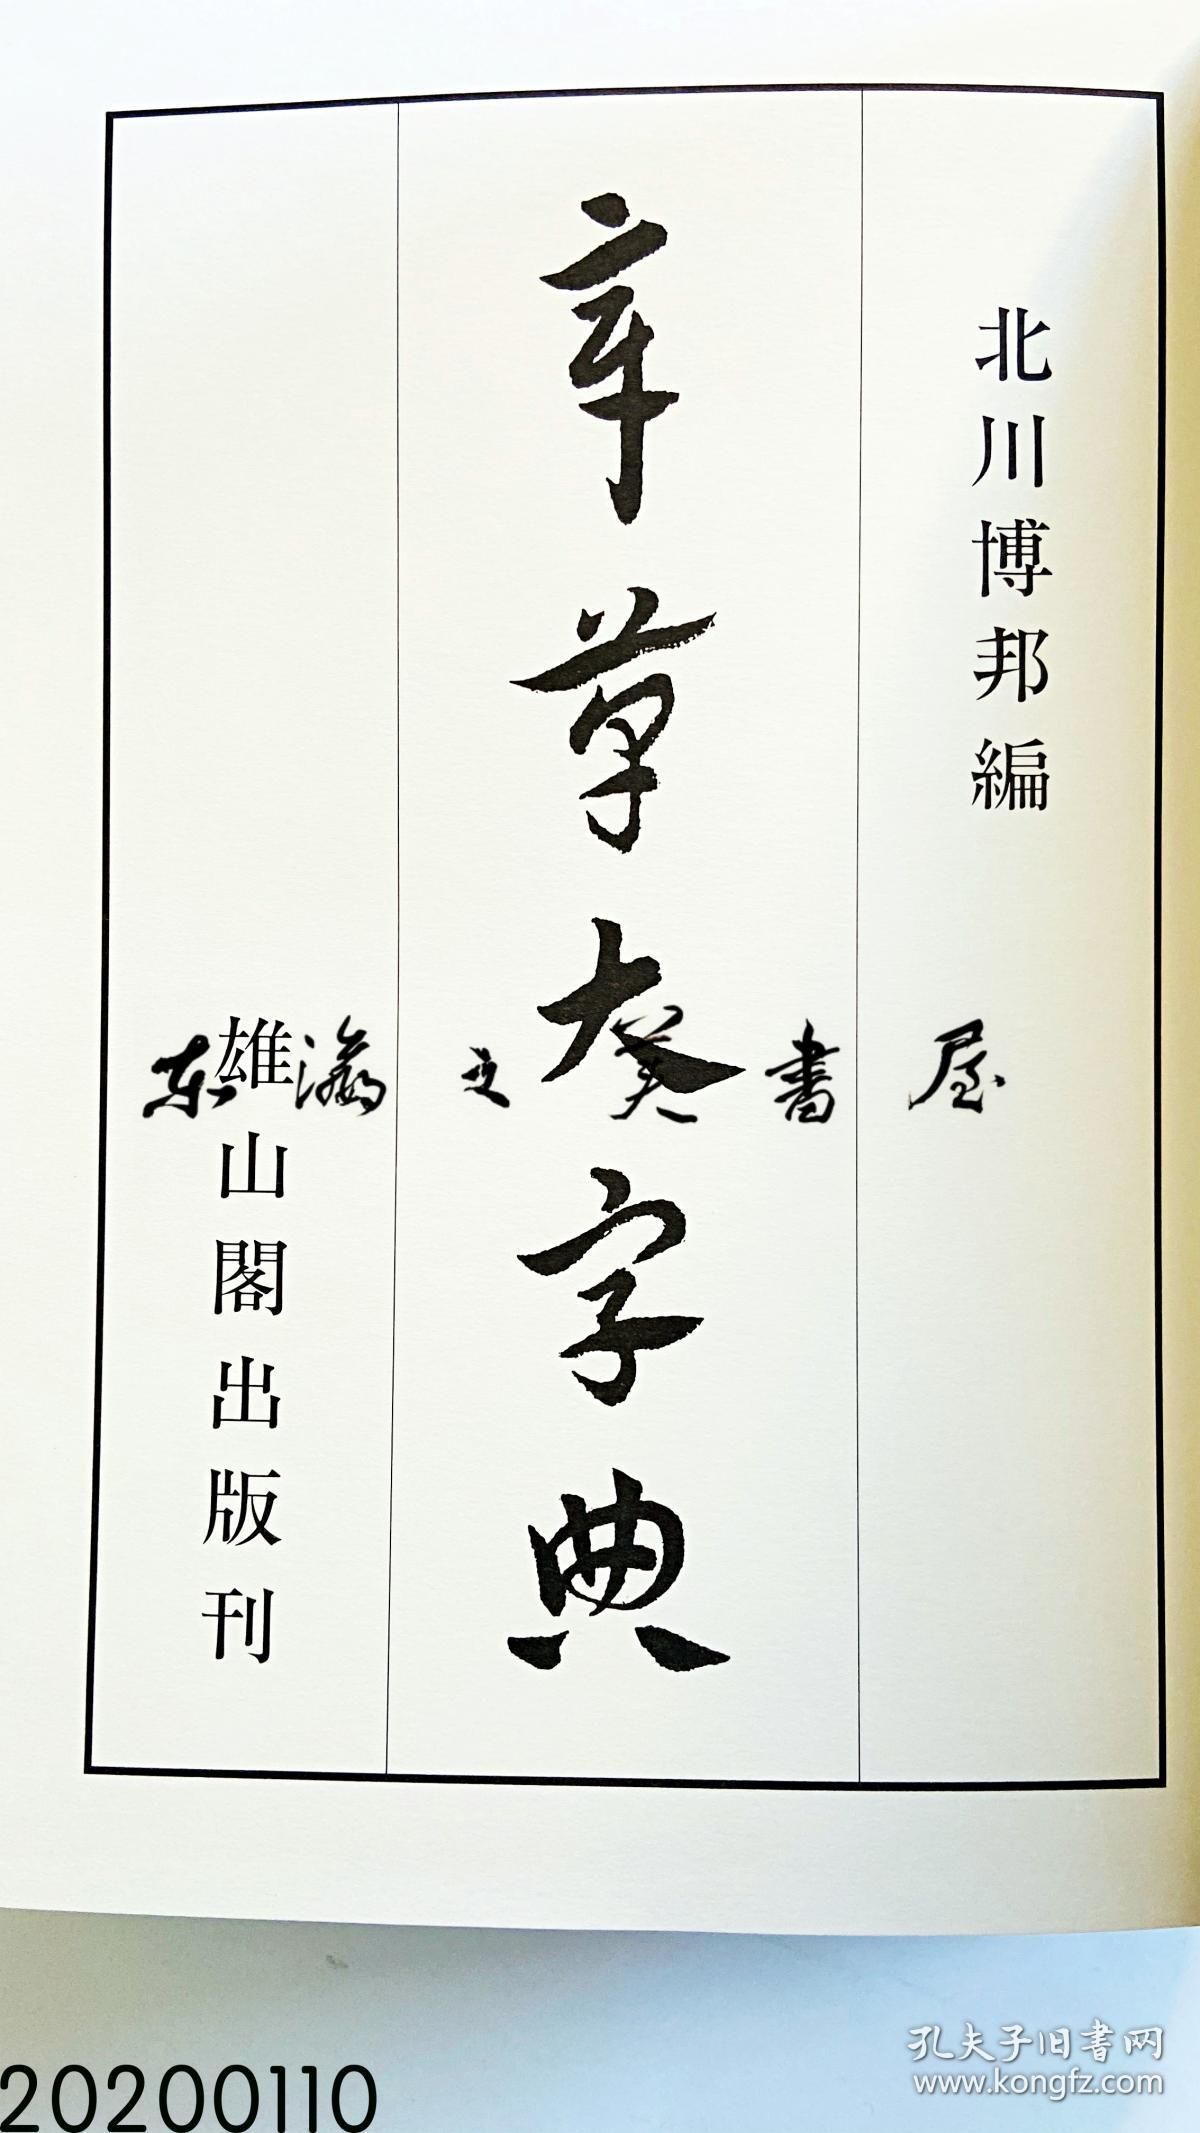 北川博邦編
章草大字典
雄山閣出版刊
东瀛文美書屋
孔夫子旧書网
www.kongfz.com
20200110